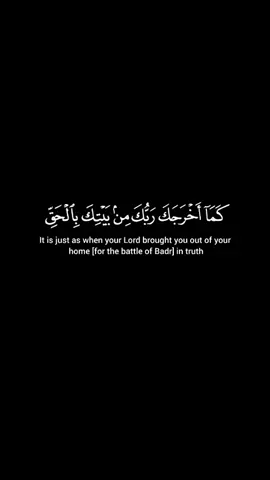 كَمَآ أَخۡرَجَكَ رَبُّكَ مِنۢ بَيۡتِكَ بِٱلۡحَقِّ
It is just as when your Lord brought you out of your
home [for the battle of Badr] in truth